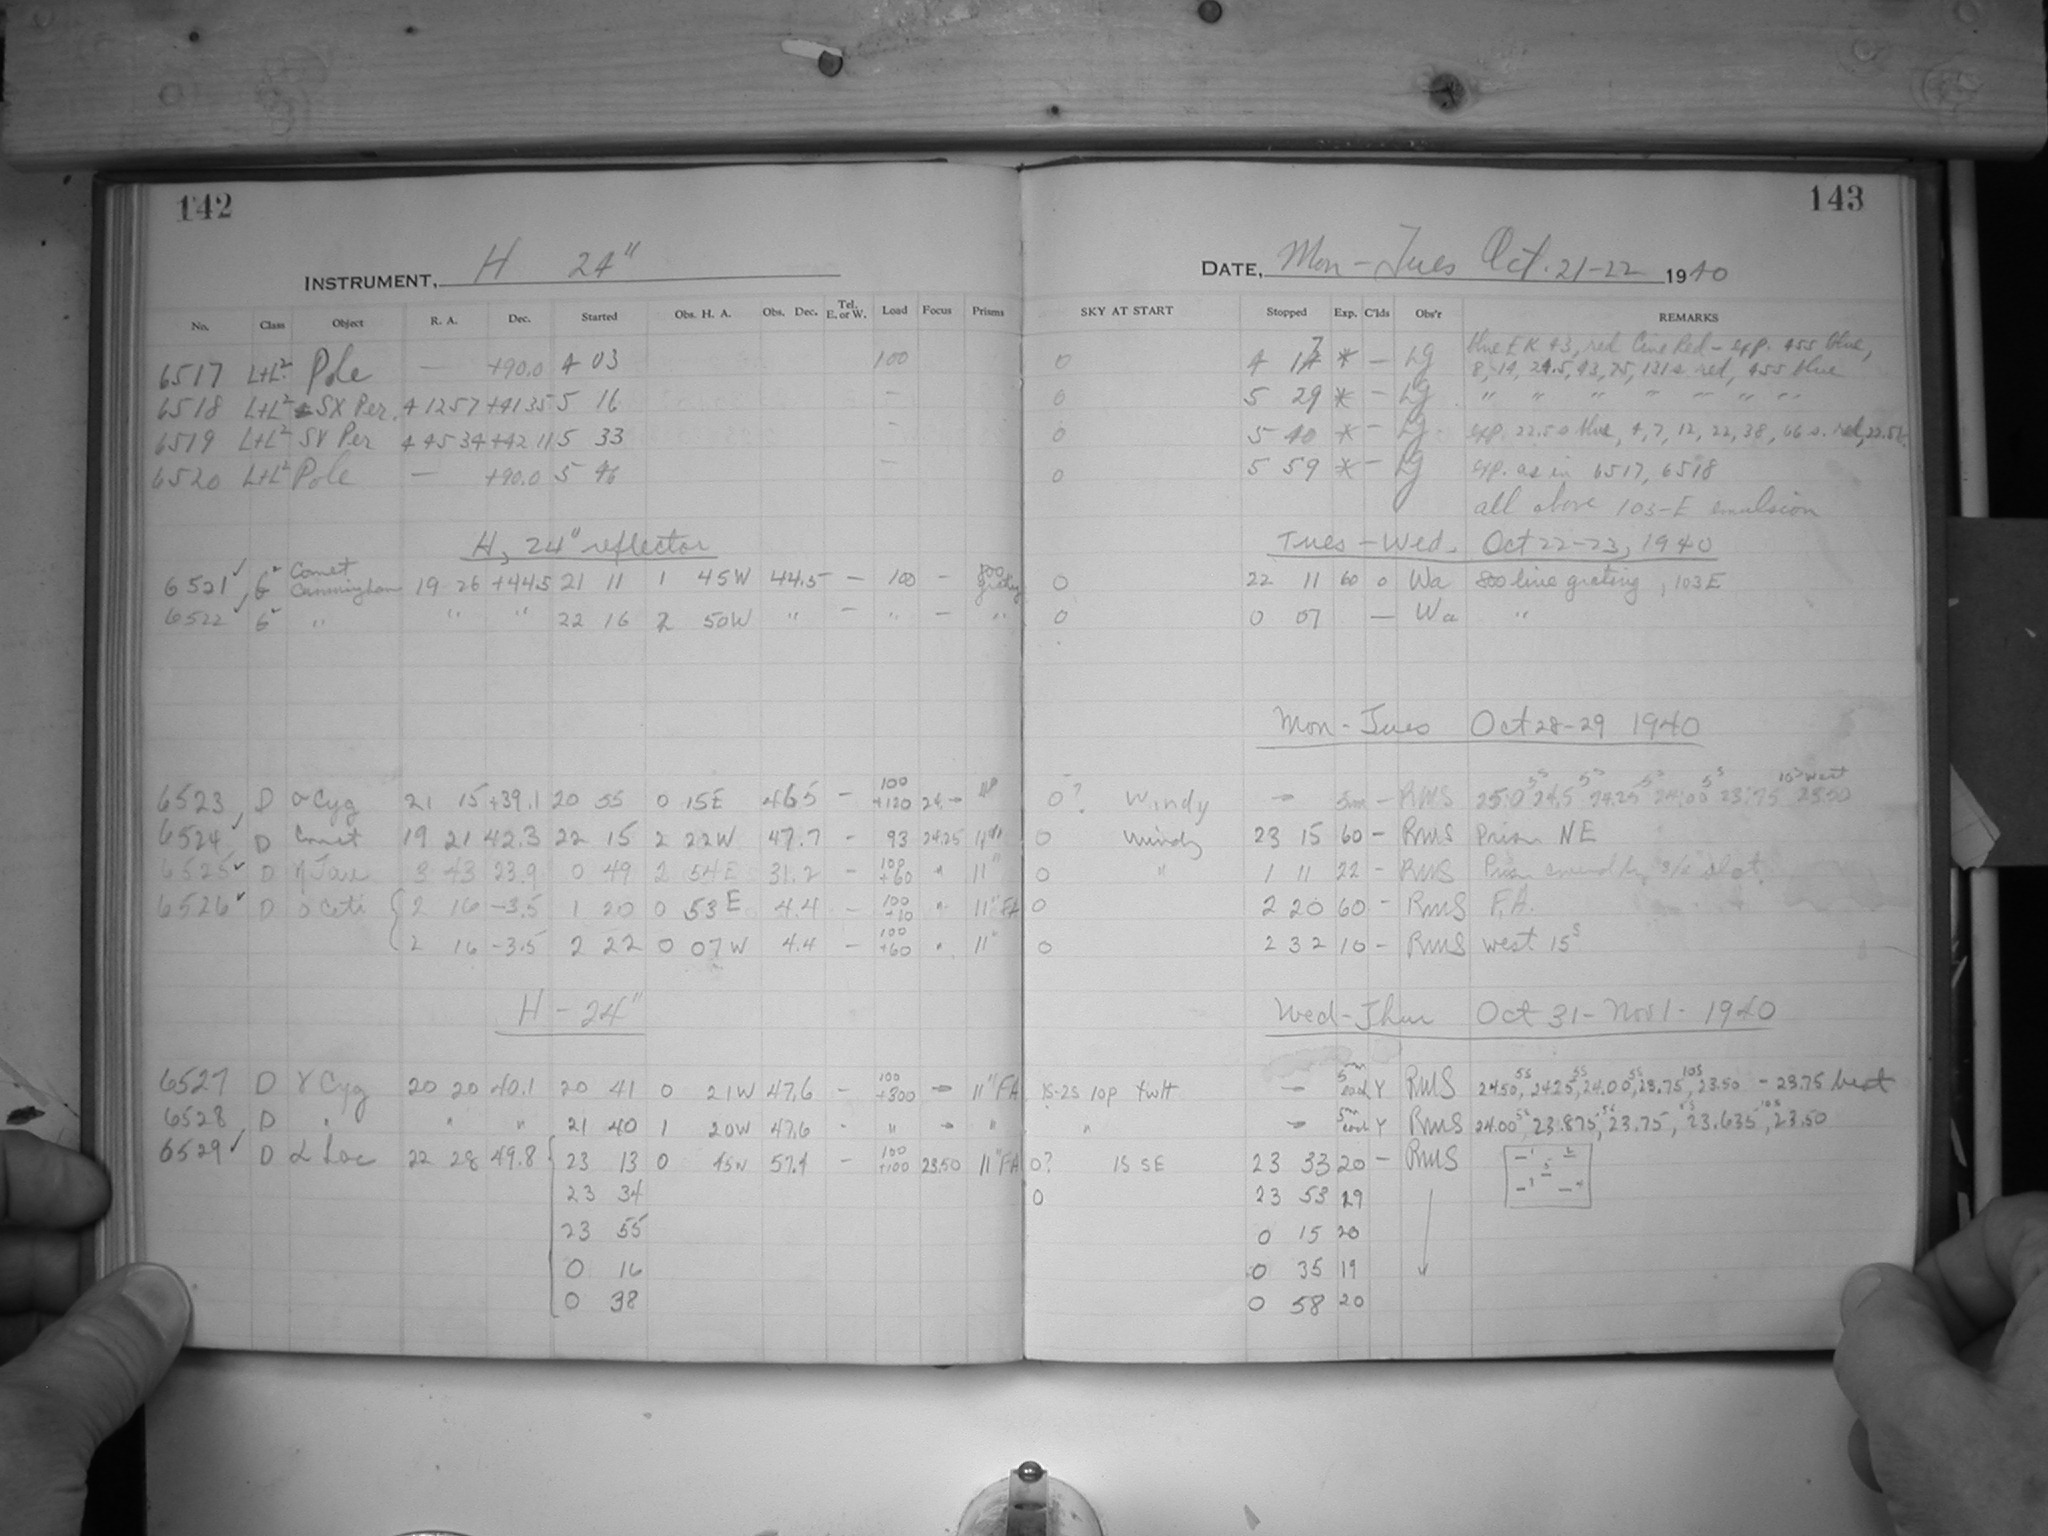 142
143
INSTRUMENT, H 24"
DATE, Mon - Tues Oct. 21-22 1940
No. Class Object R. A. Dec. Started Obs. H. A. Obs. Dec. Tel. E. or W. Load Focus Prisms SKY AT START Stopped Exp. C'lds Obs'r REMARKS
6517 L+L² Pole — +90.0 4 03 100 0 4 17 * — Lg blue EK 43, red Cine Red - exp. 455 blue,
8, 14, 24.5, 43, 75, 131 s red, 455 blue
6518 L+L² SX Per. 4 12 57 +41 35 5 16 — 0 5 29 * — Lg " " " " " " "
6519 L+L² SV Per 4 45 34 +42 11 5 33 — 0 5 40 * — Lg exp. 22.5 s blue, 4, 7, 12, 22, 38, 66 s. red, 22.5 b.
6520 L+L² Pole — +90.0 5 46 — 0 5 59 * — Lg exp. as in 6517, 6518
all above 103-E emulsion
H, 24" reflector Tues - Wed. Oct 22-23, 1940
6521 ✓ G² Comet Cunningham 19 26 +44.5 21 11 1 45W 44.5 — 100 — 800 grating 0 22 11 60 0 Wa 800 line grating, 103E
6522 ✓ G² " " " 22 16 2 50W " — " — " 0 0 07 — Wa "
Mon - Tues Oct 28-29 1940
6523 D σ Cyg 21 15 +39.1 20 55 0 15E 46.5 — 100 +120 24. → 11" 0? Windy → 5m — RMS 25.0 5s 24.5 5s 24.25 5s 24.00 5s 23.75 10s west 23.50
6524 ✓ D Comet 19 21 42.3 22 15 2 22W 47.7 — 93 24.25 11" 0 Windy 23 15 60 — RMS Prism NE
6525 ✓ D η Tau 3 43 23.9 0 49 2 54E 31.2 — 100 +60 " 11" 0 " 1 11 22 — RMS Prism
6526 ✓ D o Ceti 2 16 -3.5 1 20 0 53E 4.4 — 100 +10 " 11" FA 0 2 20 60 — RMS F.A.
2 16 -3.5 2 22 0 07W 4.4 — 100 +60 " 11" 0 2 32 10 — RMS west 15s
H - 24" Wed - Thur Oct 31 - Nov 1 - 1940
6527 D γ Cyg 20 20 40.1 20 41 0 21W 47.6 — 100 +300 → 11" FA 1S-2S 10p twlt → 5m each Y RMS 24.50, 5s 24.25, 5s 24.00, 5s 23.75, 10s 23.50 - 23.75 best
6528 D " " " 21 40 1 20W 47.6 - " → " " → 5m each Y RMS 24.00, 5s 23.875, 5s 23.75, 5s 23.635, 10s 23.50
6529 ✓ D α Lac 22 28 49.8 23 13 0 45W 57.4 — 100 +100 23.50 11" FA 0? 1S SE 23 33 20 — RMS 1 2 5 3 4
23 34 0 23 53 19
23 55 0 15 20
0 16 0 35 19
0 38 0 58 20